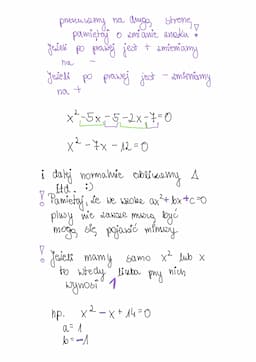 przerzucamy na drugą stronę,
pamiętaj o zmianie znaku !
Jeśli po prawej jest + zmieniamy
na -
Jeśli po prawej jest - zmieniamy
na +
x²-5x-5-2x-7=0
x²-7x-12=0
i dalej normalnie obliczamy Δ
itd. :)
! Pamiętaj, że we wzorze ax²+bx+c=0
plusy nie zawsze muszą być
mogą się pojawić minusy.
! Jeżeli mamy samo x² lub x
to wtedy liczba przy nich
wynosi 1
np. x²-x+14=0
a=1
b=-1